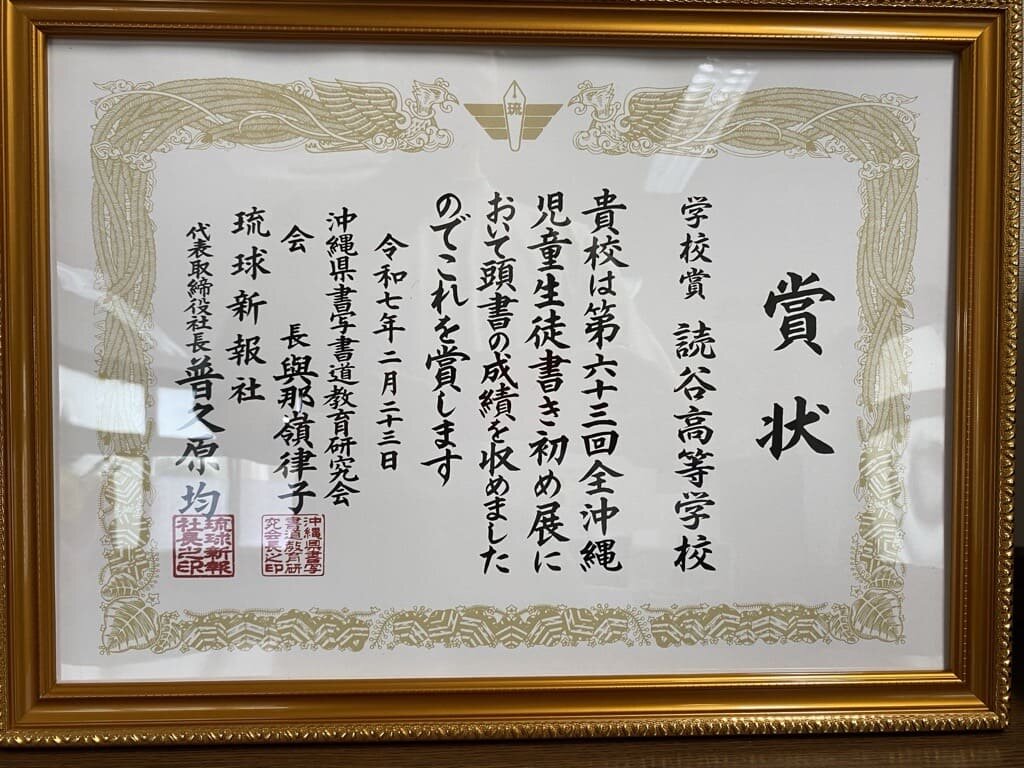 琉
賞状
学校賞 読谷高等学校
貴校は第六十三回全沖縄
児童生徒書き初め展に
おいて頭書の成績を収めました
のでこれを賞します
令和七年二月二十三日
沖縄県書写書道教育研究会
会長 與那嶺律子
沖縄県書写
書道教育研
究会長之印
琉球新報社
代表取締役社長 普久原均
琉球新報
社長之印